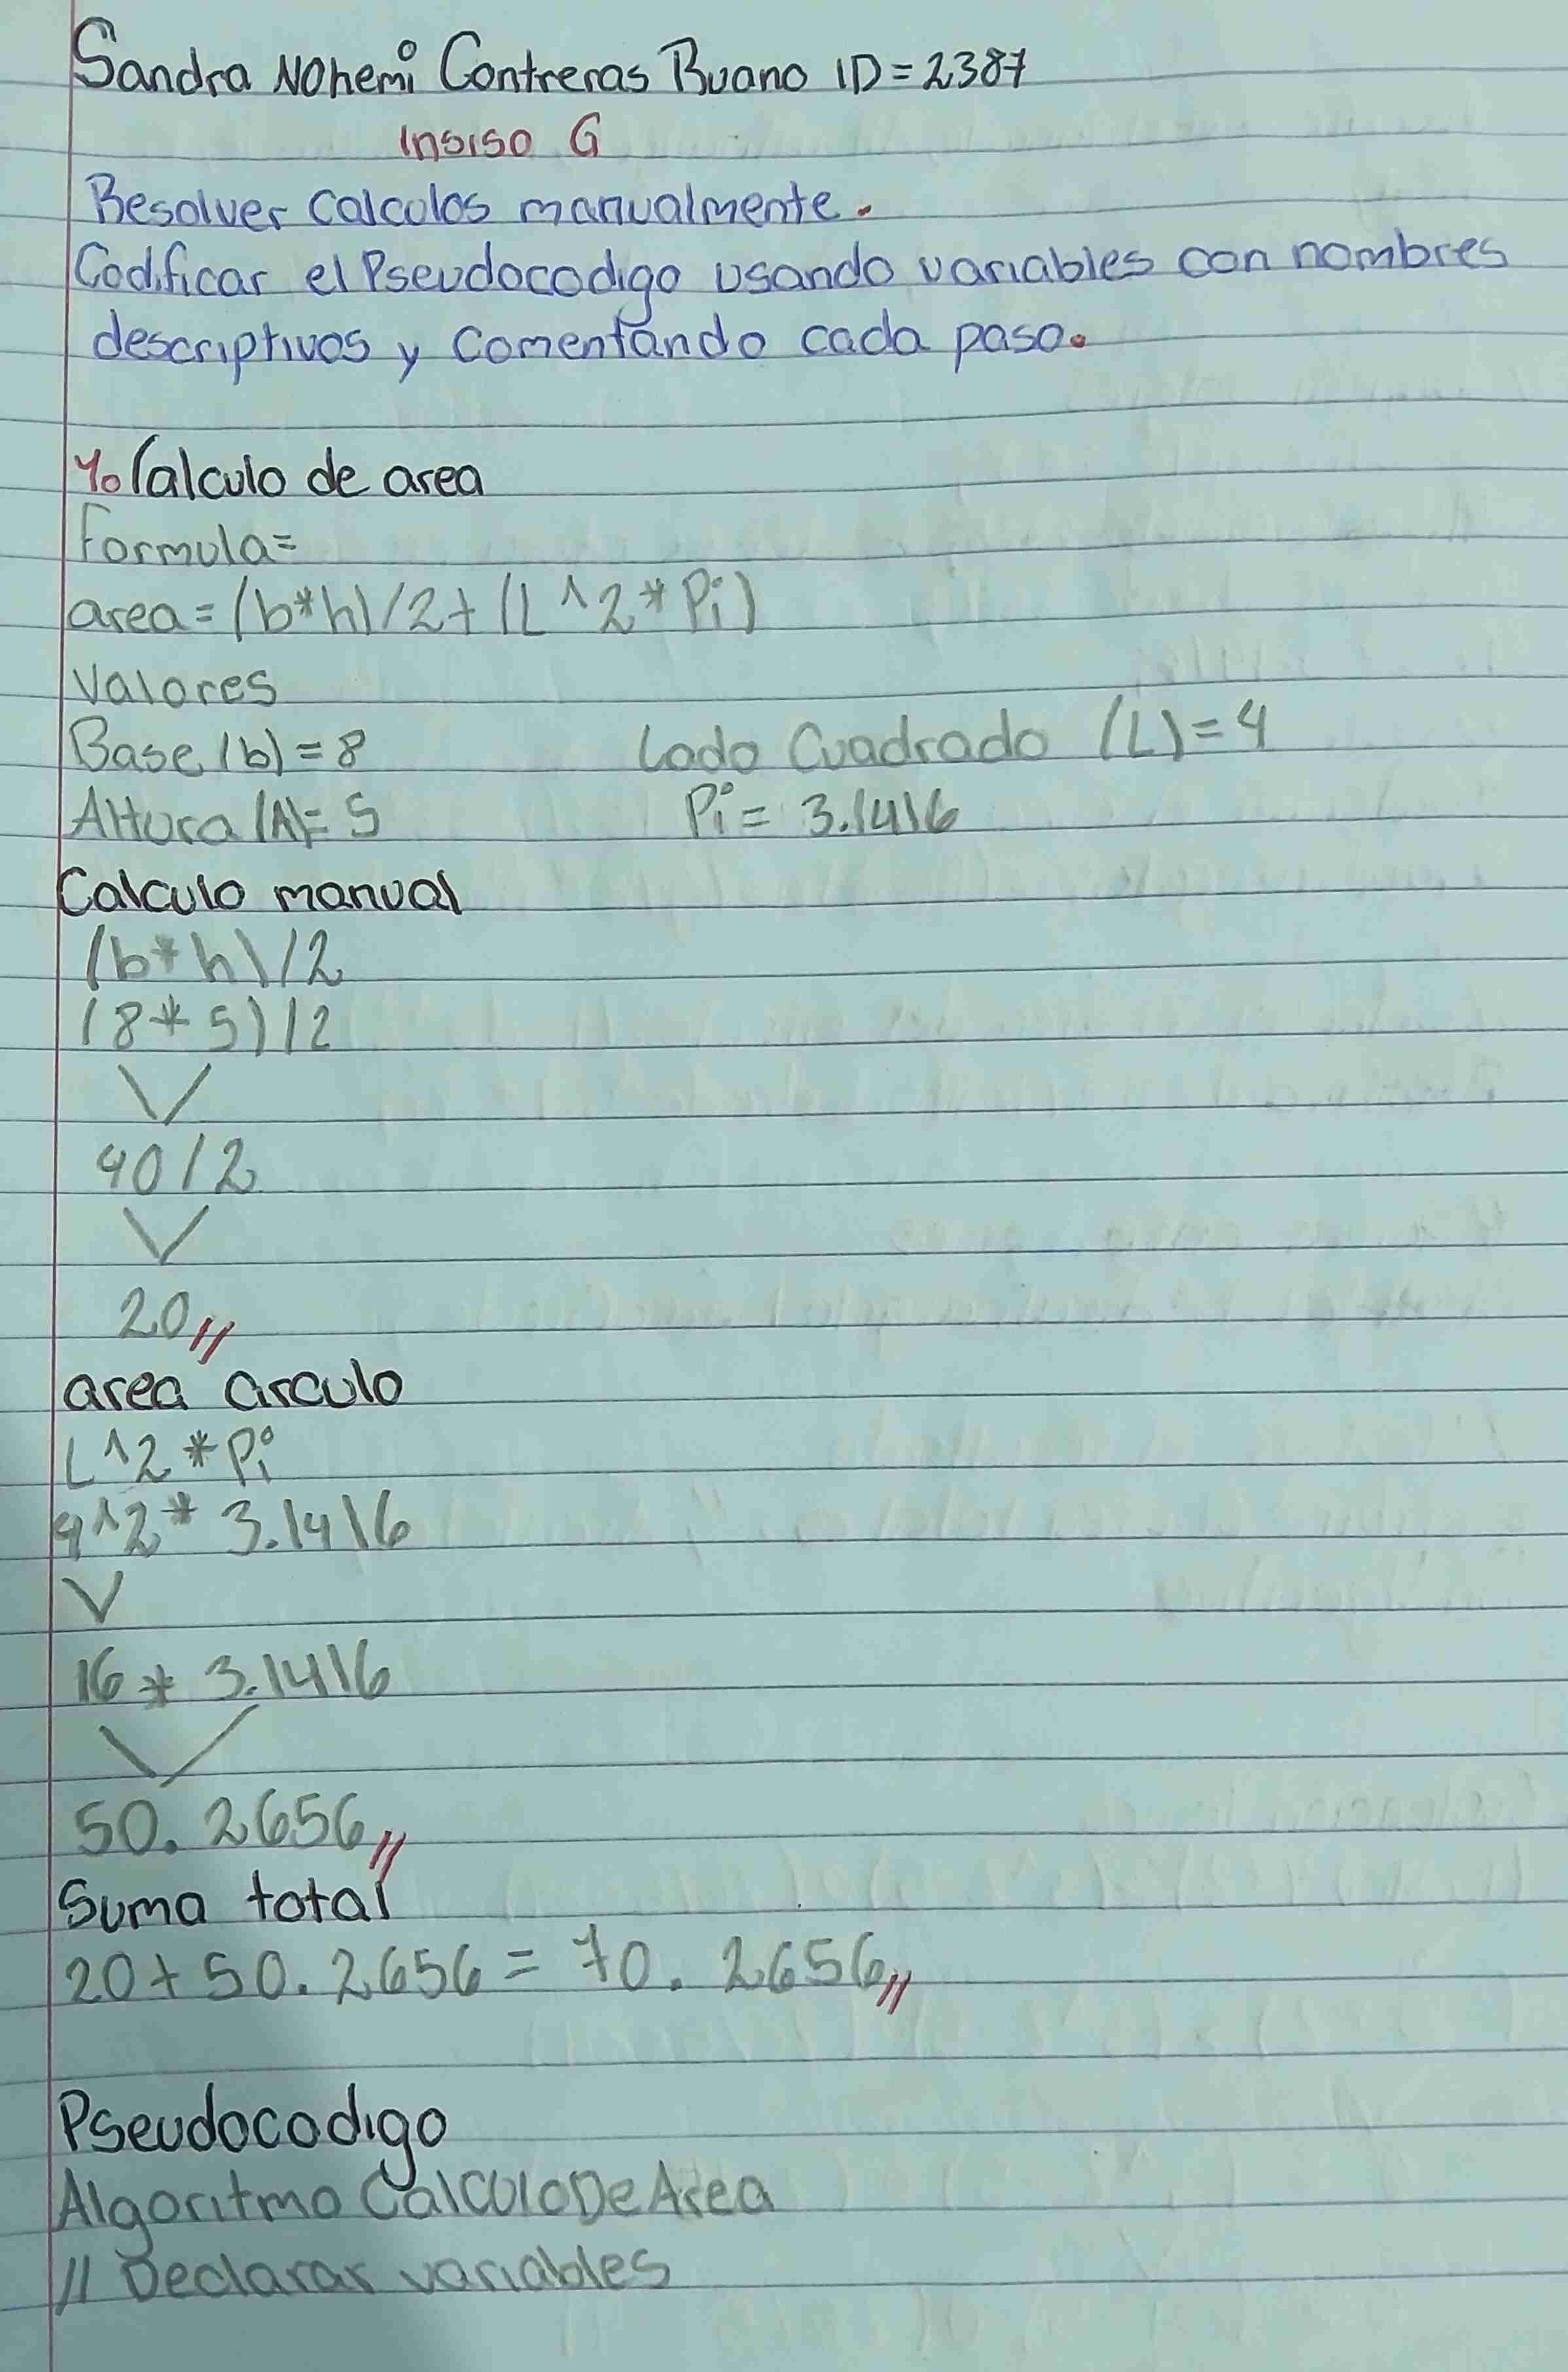 Sandra NOhemi Contreras Buano ID=2387
Insiso G
Resolver Calculos manualmente.
Codificar el Pseudocodigo usando variables con nombres
descriptivos y Comentando cada paso.
Calculo de area
Formula=
area=(b*h)/2+(L^2*Pi)
Valores
Base (b)=8 Lado Cuadrado (L)=4
Altura (A)=5 Pi= 3.1416
Calculo manual
(b*h)/2
(8*5)/2
40/2
20//
area circulo
L^2*Pi
4^2* 3.1416
16* 3.1416
50.2656//
Suma total
20+50.2656=70.2656//
Pseudocodigo
Algoritmo CalculoDeArea
// Declarar variables